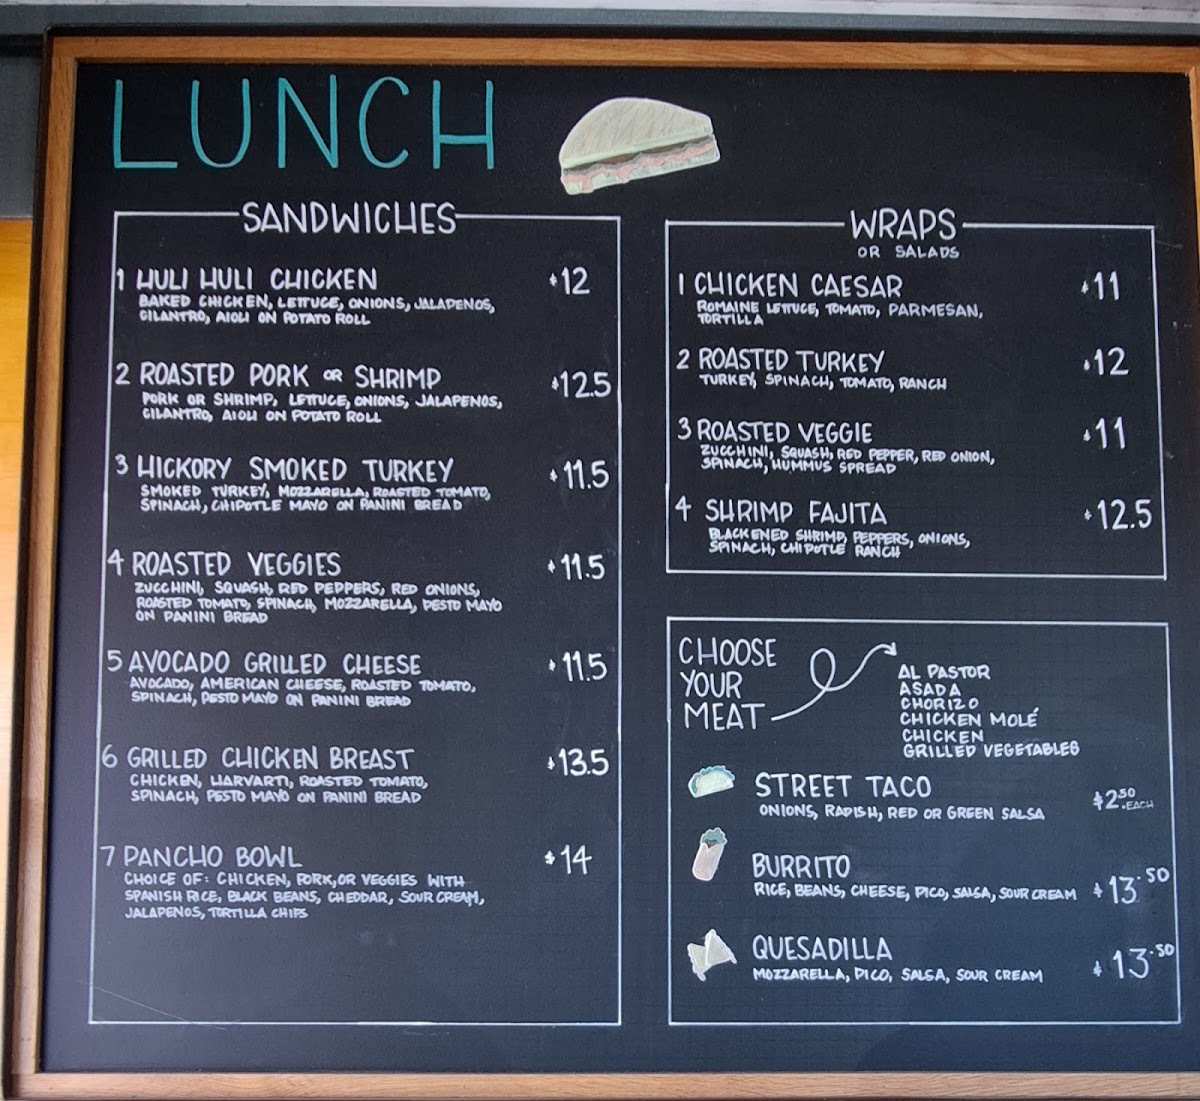 LUNCH
SANDWICHES
1 HULI HULI CHICKEN $12
BAKED CHICKEN, LETTUCE, ONIONS, JALAPENOS,
CILANTRO, AIOLI ON POTATO ROLL
2 ROASTED PORK OR SHRIMP $12.5
PORK OR SHRIMP, LETTUCE, ONIONS, JALAPENOS,
CILANTRO, AIOLI ON POTATO ROLL
3 HICKORY SMOKED TURKEY $11.5
SMOKED TURKEY, MOZZARELLA, ROASTED TOMATO,
SPINACH, CHIPOTLE MAYO ON PANINI BREAD
4 ROASTED VEGGIES $11.5
ZUCCHINI, SQUASH, RED PEPPERS, RED ONIONS,
ROASTED TOMATO, SPINACH, MOZZARELLA, PESTO MAYO
ON PANINI BREAD
5 AVOCADO GRILLED CHEESE $11.5
AVOCADO, AMERICAN CHEESE, ROASTED TOMATO,
SPINACH, PESTO MAYO ON PANINI BREAD
6 GRILLED CHICKEN BREAST $13.5
CHICKEN, HARVARTI, ROASTED TOMATO,
SPINACH, PESTO MAYO ON PANINI BREAD
7 PANCHO BOWL $14
CHOICE OF: CHICKEN, PORK, OR VEGGIES WITH
SPANISH RICE, BLACK BEANS, CHEDDAR, SOUR CREAM,
JALAPENOS, TORTILLA CHIPS
WRAPS
OR SALADS
1 CHICKEN CAESAR $11
ROMAINE LETTUCE, TOMATO, PARMESAN,
TORTILLA
2 ROASTED TURKEY $12
TURKEY, SPINACH, TOMATO, RANCH
3 ROASTED VEGGIE $11
ZUCCHINI, SQUASH, RED PEPPER, RED ONION,
SPINACH, HUMMUS SPREAD
4 SHRIMP FAJITA $12.5
BLACKENED SHRIMP, PEPPERS, ONIONS,
SPINACH, CHIPOTLE RANCH
CHOOSE
YOUR
MEAT
AL PASTOR
ASADA
CHORIZO
CHICKEN MOLÉ
CHICKEN
GRILLED VEGETABLES
STREET TACO $2.50 EACH
ONIONS, RADISH, RED OR GREEN SALSA
BURRITO
RICE, BEANS, CHEESE, PICO, SALSA, SOUR CREAM $13.50
QUESADILLA $13.50
MOZZARELLA, PICO, SALSA, SOUR CREAM